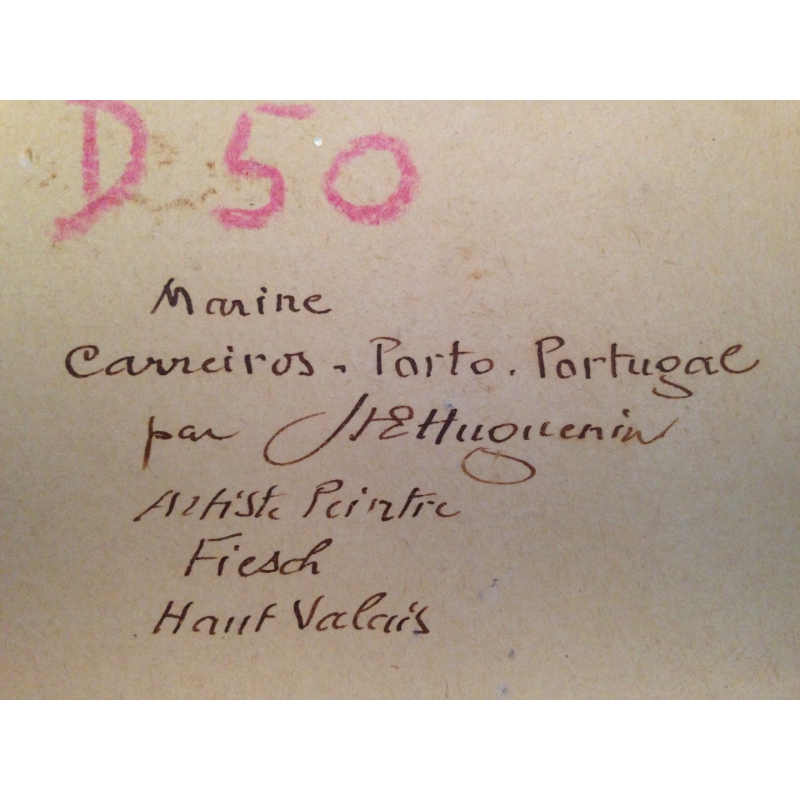 D 50
Marine
Carreiros. Porto. Portugal
par JHEHuguenin
Artiste Peintre
Fiesch
Haut Valais